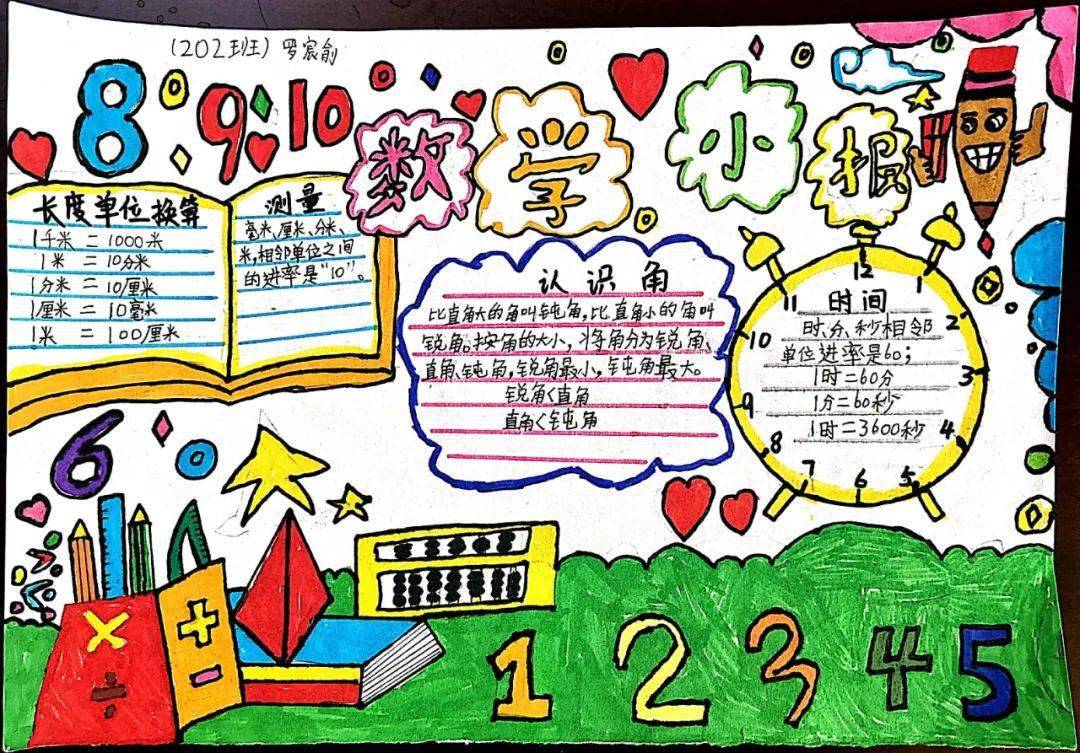 (202班) 罗宸俞
8 9 10
数学小报
长度单位换算
1千米 = 1000米
1米 = 10分米
1分米 = 10厘米
1厘米 = 10毫米
1米 = 100厘米
测量
毫米、厘米、分米、
米,相邻单位之间
的进率是"10"。
认识角
比直角大的角叫钝角,比直角小的角叫
锐角。按角的大小,将角分为锐角、
直角、钝角,锐角最小,钝角最大。
锐角<直角
直角<钝角
时间
时、分、秒相邻
单位进率是60;
1时=60分
1分=60秒
1时=3600秒
12
11
2
10
3
9
4
8
7
6
5
6
×
÷
+
-
1 2 3 4 5